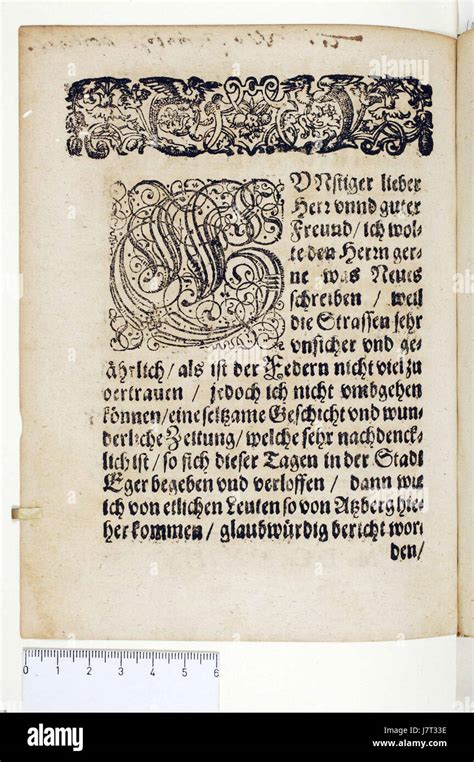 GUnstiger lieber
Herr vnnd guter
Freund/ ich wol-
te den Herrn ger-
ne was Neues
schreiben / weil
die Strassen sehr
vnsicher vnd ge-
fährlich/ als ist der Federn nicht viel zu
vertrauen / jedoch ich nicht vmbgehen
können/ eine seltzame Geschicht vnd wun-
derliche Zeitung/ welche sehr nachdenck-
lich ist/ so sich dieser Tagen in der Stadt
Eger begeben vnd verloffen / dann wie
ich von etlichen Leuten so von Atzberg hie-
her kommen / glaubwürdig bericht wor-
den/
0 1 2 3 4 5 6
alamy
Image ID: J7T33E
www.alamy.com